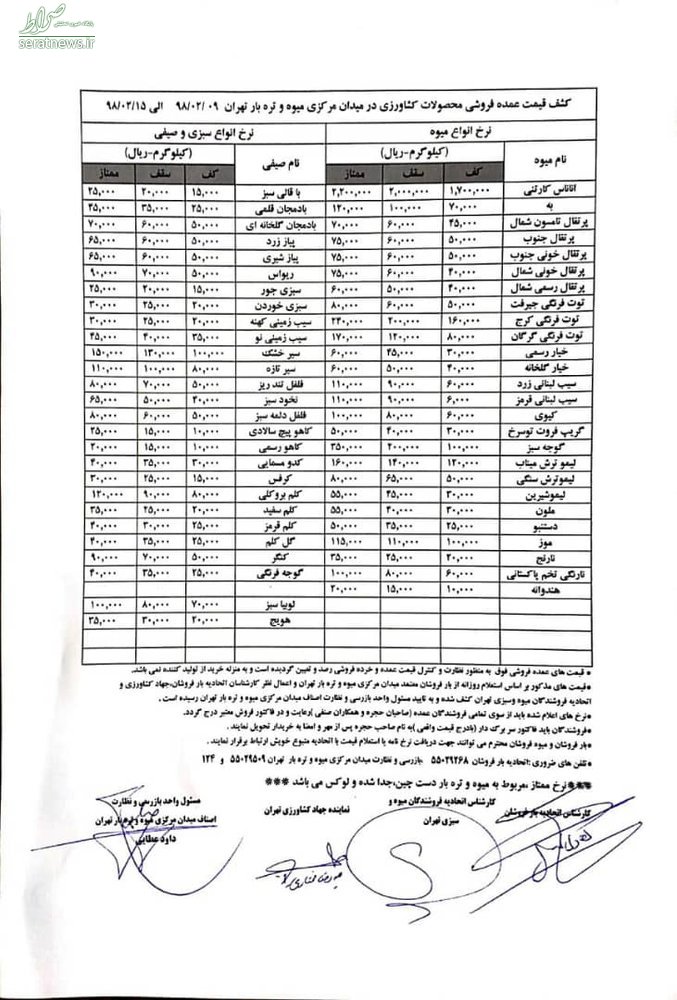 صراط
پایگاه خبری تحلیلی
seratnews.ir
کشف قیمت عمده فروشی محصولات کشاورزی در میدان مرکزی میوه و تره بار تهران ۹۸/۰۲/۰۹ الی ۹۸/۰۲/۱۵
نرخ انواع میوه نرخ انواع سبزی و صیفی
نام میوه (کیلوگرم-ریال) نام صیفی (کیلوگرم-ریال)
کف سقف ممتاز کف سقف ممتاز
اناناس کارتنی ۱,۷۰۰,۰۰۰ ۲,۰۰۰,۰۰۰ ۲,۲۰۰,۰۰۰ با قالی سبز ۱۵,۰۰۰ ۲۰,۰۰۰ ۲۵,۰۰۰
به ۷۰,۰۰۰ ۱۰۰,۰۰۰ ۱۲۰,۰۰۰ بادمجان قلمی ۲۵,۰۰۰ ۳۵,۰۰۰ ۴۵,۰۰۰
پرتقال تامسون شمال ۴۵,۰۰۰ ۶۰,۰۰۰ ۷۰,۰۰۰ بادمجان گلخانه ای ۵۰,۰۰۰ ۶۰,۰۰۰ ۷۰,۰۰۰
پرتقال جنوب ۵۰,۰۰۰ ۶۰,۰۰۰ ۷۵,۰۰۰ پیاز زرد ۵۰,۰۰۰ ۶۰,۰۰۰ ۶۵,۰۰۰
پرتقال خونی جنوب ۵۰,۰۰۰ ۶۰,۰۰۰ ۷۵,۰۰۰ پیاز شیری ۵۰,۰۰۰ ۶۰,۰۰۰ ۶۵,۰۰۰
پرتقال خونی شمال ۴۰,۰۰۰ ۶۰,۰۰۰ ۷۵,۰۰۰ ریواس ۵۰,۰۰۰ ۷۰,۰۰۰ ۹۰,۰۰۰
پرتقال رسمی شمال ۴۰,۰۰۰ ۵۰,۰۰۰ ۶۰,۰۰۰ سبزی جور ۱۵,۰۰۰ ۲۰,۰۰۰ ۲۵,۰۰۰
توت فرنگی جیرفت ۵۰,۰۰۰ ۶۰,۰۰۰ ۸۰,۰۰۰ سبزی خوردن ۲۰,۰۰۰ ۲۵,۰۰۰ ۳۰,۰۰۰
توت فرنگی کرج ۱۶۰,۰۰۰ ۲۰۰,۰۰۰ ۲۴۰,۰۰۰ سیب زمینی کهنه ۲۰,۰۰۰ ۲۵,۰۰۰ ۳۰,۰۰۰
توت فرنگی گرگان ۸۰,۰۰۰ ۱۲۰,۰۰۰ ۱۷۰,۰۰۰ سیب زمینی نو ۳۵,۰۰۰ ۴۰,۰۰۰ ۴۵,۰۰۰
خیار رسمی ۳۰,۰۰۰ ۴۵,۰۰۰ ۶۰,۰۰۰ سیر خشک ۱۰۰,۰۰۰ ۱۳۰,۰۰۰ ۱۵۰,۰۰۰
خیار گلخانه ۴۰,۰۰۰ ۵۰,۰۰۰ ۶۰,۰۰۰ سیر تازه ۸۰,۰۰۰ ۱۰۰,۰۰۰ ۱۱۰,۰۰۰
سیب لبنانی زرد ۶۰,۰۰۰ ۹۰,۰۰۰ ۱۱۰,۰۰۰ فلفل تند ریز ۵۰,۰۰۰ ۷۰,۰۰۰ ۸۰,۰۰۰
سیب لبنانی قرمز ۶,۰۰۰ ۹۰,۰۰۰ ۱۱۰,۰۰۰ نخود سبز ۴۰,۰۰۰ ۵۰,۰۰۰ ۶۵,۰۰۰
کیوی ۶۰,۰۰۰ ۸۰,۰۰۰ ۱۰۰,۰۰۰ فلفل دلمه سبز ۵۰,۰۰۰ ۶۰,۰۰۰ ۸۰,۰۰۰
گریپ فروت توسرخ ۳۰,۰۰۰ ۴۰,۰۰۰ ۵۰,۰۰۰ کاهو پیچ سالادی ۱۰,۰۰۰ ۱۵,۰۰۰ ۲۵,۰۰۰
گوجه سبز ۱۰۰,۰۰۰ ۲۰۰,۰۰۰ ۳۵۰,۰۰۰ کاهو رسمی ۱۰,۰۰۰ ۱۵,۰۰۰ ۲۰,۰۰۰
لیمو ترش میناب ۱۲۰,۰۰۰ ۱۴۰,۰۰۰ ۱۶۰,۰۰۰ کدو مسمایی ۳۰,۰۰۰ ۳۵,۰۰۰ ۴۰,۰۰۰
لیموترش سنگی ۵۰,۰۰۰ ۶۵,۰۰۰ ۸۰,۰۰۰ کرفس ۱۵,۰۰۰ ۲۵,۰۰۰ ۳۰,۰۰۰
لیموشیرین ۳۰,۰۰۰ ۴۵,۰۰۰ ۵۵,۰۰۰ کلم بروکلی ۸۰,۰۰۰ ۹۰,۰۰۰ ۱۲۰,۰۰۰
ملون ۳۰,۰۰۰ ۴۰,۰۰۰ ۵۵,۰۰۰ کلم سفید ۲۰,۰۰۰ ۲۵,۰۰۰ ۳۵,۰۰۰
دستنبو ۲۵,۰۰۰ ۳۵,۰۰۰ ۵۰,۰۰۰ کلم قرمز ۲۵,۰۰۰ ۳۰,۰۰۰ ۴۰,۰۰۰
موز ۱۰۰,۰۰۰ ۱۱۰,۰۰۰ ۱۱۵,۰۰۰ گل کلم ۲۵,۰۰۰ ۳۵,۰۰۰ ۴۰,۰۰۰
نارنج ۲۰,۰۰۰ ۲۵,۰۰۰ ۳۵,۰۰۰ کنگر ۵۰,۰۰۰ ۷۰,۰۰۰ ۹۰,۰۰۰
نارنگی تخم پاکستانی ۶۰,۰۰۰ ۸۰,۰۰۰ ۱۰۰,۰۰۰ گوجه فرنگی ۲۵,۰۰۰ ۳۵,۰۰۰ ۴۰,۰۰۰
هندوانه ۱۰,۰۰۰ ۱۵,۰۰۰ ۲۰,۰۰۰
لوبیا سبز ۷۰,۰۰۰ ۸۰,۰۰۰ ۱۰۰,۰۰۰
هویج ۲۰,۰۰۰ ۳۰,۰۰۰ ۳۵,۰۰۰
* قیمت های عمده فروشی فوق به منظور نظارت و کنترل قیمت عمده و خرده فروشی رصد و تعیین گردیده است و به منزله خرید از تولید کننده نمی باشد.
*قیمت های مذکور بر اساس استعلام روزانه از بار فروشان معتمد میدان مرکزی میوه و تره بار تهران و اعمال نظر کارشناسان اتحادیه بار فروشان،جهاد کشاورزی و
اتحادیه فروشندگان میوه وسبزی تهران کشف شده و به تایید مسئول واحد بازرسی و نظارت اصناف میدان مرکزی میوه و تره بار تهران رسیده است .
*نرخ های اعلام شده باید از سوی تمامی فروشندگان عمده (صاحبان حجره و همکاران صنفی )رعایت و در فاکتور فروش معتبر درج گردد.
*فروشندگان باید فاکتور سر برگ دار (بادرج قیمت واقعی )به نام صاحب حجره پس از مهر و امضا به خریدار تحویل نمایند .
*بار فروشان و میوه فروشان محترم می توانند جهت دریافت نرخ نامه یا استعلام قیمت با اتحادیه متبوع خویش ارتباط برقرار نمایند .
* تلفن های ضروری :اتحادیه بار فروشان ۵۵۰۲۹۲۶۸ بازرسی و نظارت میدان مرکزی میوه و تره بار تهران ۵۵۰۲۹۵۰۹ و ۱۲۴
***نرخ ممتاز ،مربوط به میوه و تره بار دست چین،جدا شده و لوکس می باشد ***
کارشناس اتحادیه بار فروشان
کارشناس اتحادیه فروشندگان میوه و
سبزی تهران
نماینده جهاد کشاورزی تهران
مسئول واحد بازرسی و نظارت
اصناف میدان مرکزی میوه و تره بار تهران
داود عطایی